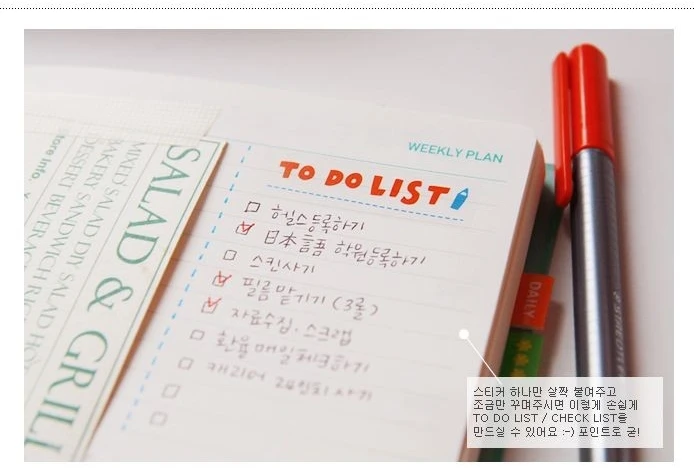 WEEKLY PLAN
TO DO LIST
헬스등록하기
日本語 학원등록하기
스킨사기
필름맡기기 (3롤)
자료수집, 스크랩
환율매일체크하기
캐리어
사기
SALAD & GRILL
MIXED SALAD DIY SALAD
BAKERY SANDWICH
DESSERT BEVERAGE
store info
DAILY
스티커 하나만 살짝 붙여주고
조금만 꾸며주시면 이렇게 손쉽게
TO DO LIST / CHECK LIST를
만드실 수 있어요 :-) 포인트로 굳!